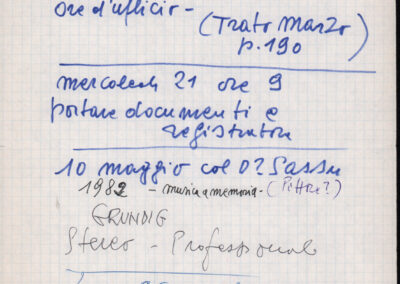 ore d'ufficio - (Trato Marzo)
p. 190
mercoledì 21 ore 9
portare documenti e
registratore
10 maggio col D? Sassu
1982 - musica a memoria - (Pittore?)
GRUNDIG
Stereo - Professional